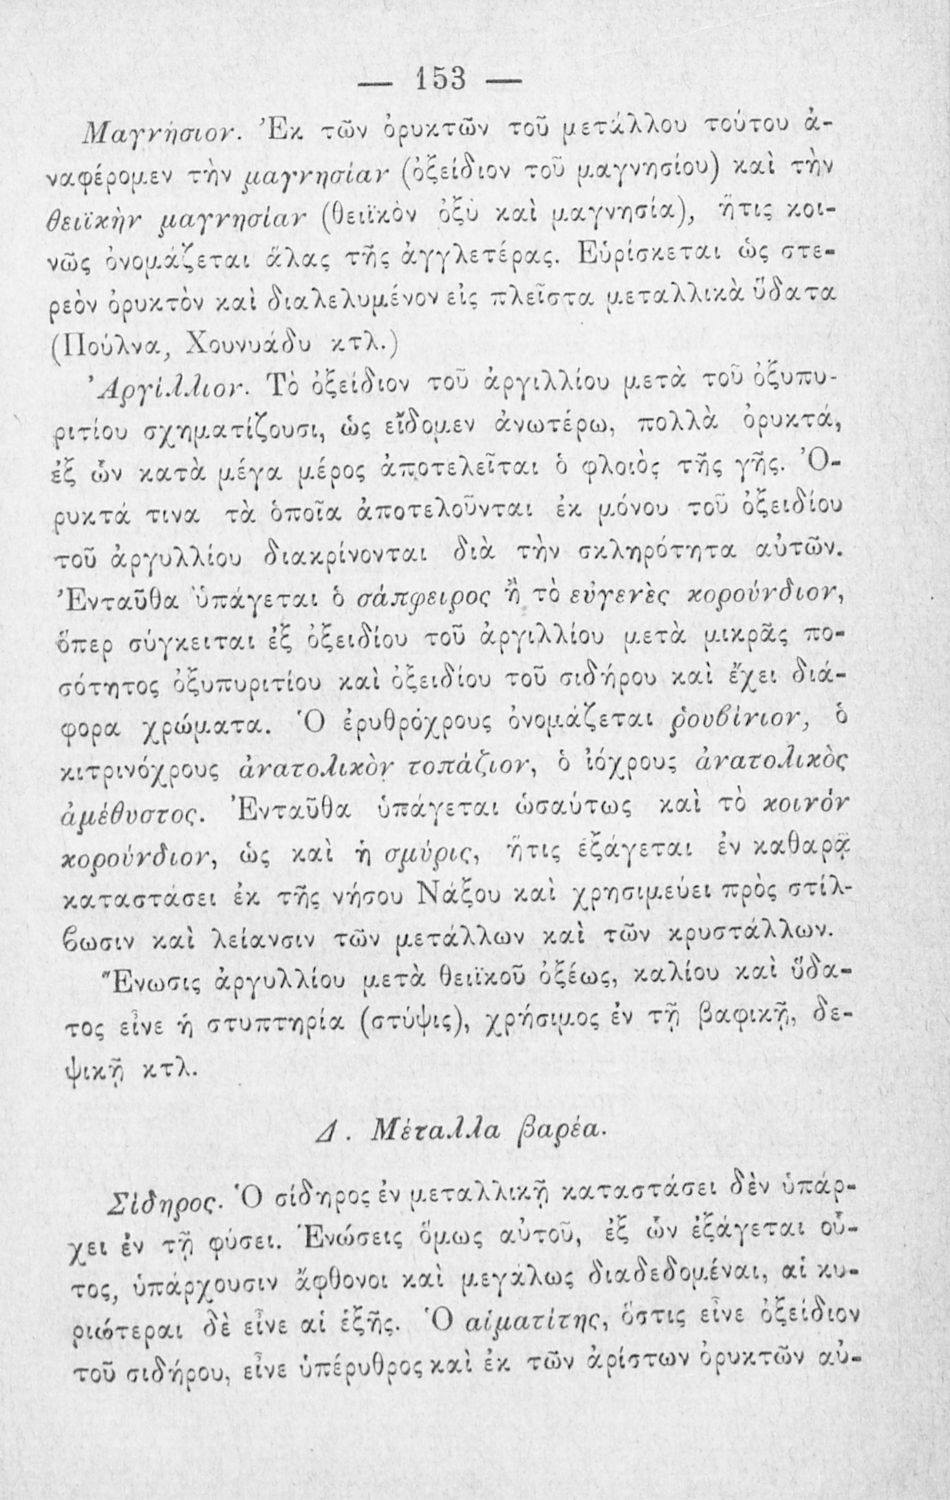 — 153 —
Μαγνήσιον. Ἐκ τῶν ὀρυκτῶν τοῦ μετάλλου τούτου ἀ-
ναφέρομεν τὴν μαγνησίαν (ὀξείδιον τοῦ μαγνησίου) καὶ τὴν
θειϊκὴν μαγνησίαν (θειϊκὸν ὀξὺ καὶ μαγνησία), ἥτις κοι-
νῶς ὀνομάζεται ἅλας τῆς ἀγγλετέρας. Εὑρίσκεται ὡς στε-
ρεὸν ὀρυκτὸν καὶ διαλελυμένον εἰς πλεῖστα μεταλλικὰ ὕδατα
(Πούλνα, Χουνυάδυ κτλ.)
Ἀργίλλιον. Τὸ ὀξείδιον τοῦ ἀργιλλίου μετὰ τοῦ ὀξυπυ-
ριτίου σχηματίζουσι, ὡς εἴδομεν ἀνωτέρω, πολλὰ ὀρυκτά,
ἐξ ὧν κατὰ μέγα μέρος ἀποτελεῖται ὁ φλοιὸς τῆς γῆς. Ὀ-
ρυκτά τινα τὰ ὁποῖα ἀποτελοῦνται ἐκ μόνου τοῦ ὀξειδίου
τοῦ ἀργυλλίου διακρίνονται διὰ τὴν σκληρότητα αὐτῶν.
Ἐνταῦθα ὑπάγεται ὁ σάπφειρος ἢ τὸ εὐγενὲς κορούνδιον,
ὅπερ σύγκειται ἐξ ὀξειδίου τοῦ ἀργιλλίου μετὰ μικρᾶς πο-
σότητος ὀξυπυριτίου καὶ ὀξειδίου τοῦ σιδήρου καὶ ἔχει διά-
φορα χρώματα. Ὁ ἐρυθρόχρους ὀνομάζεται ῥουβίνιον, ὁ
κιτρινόχρους ἀνατολικὸν τοπάζιον, ὁ ἰόχρους ἀνατολικὸς
ἀμέθυστος. Ἐνταῦθα ὑπάγεται ὡσαύτως καὶ τὸ κοινὸν
κορούνδιον, ὡς καὶ ἡ σμύρις, ἥτις ἐξάγεται ἐν καθαρᾷ
καταστάσει ἐκ τῆς νήσου Νάξου καὶ χρησιμεύει πρὸς στίλ-
βωσιν καὶ λείανσιν τῶν μετάλλων καὶ τῶν κρυστάλλων.
Ἕνωσις ἀργυλλίου μετὰ θειϊκοῦ ὀξέως, καλίου καὶ ὕδα-
τος εἶνε ἡ στυπτηρία (στύψις), χρήσιμος ἐν τῇ βαφικῇ, δε-
ψικῇ κτλ.
Δ. Μέταλλα βαρέα.
Σίδηρος. Ὁ σίδηρος ἐν μεταλλικῇ καταστάσει δὲν ὑπάρ-
χει ἐν τῇ φύσει. Ἑνώσεις ὅμως αὐτοῦ, ἐξ ὧν ἐξάγεται οὗ-
τος, ὑπάρχουσιν ἄφθονοι καὶ μεγάλως διαδεδομέναι, αἱ κυ-
ριώτεραι δὲ εἶνε αἱ ἑξῆς. Ὁ αἱματίτης, ὅστις εἶνε ὀξείδιον
τοῦ σιδήρου, εἶνε ὑπέρυθρος καὶ ἐκ τῶν ἀρίστων ὀρυκτῶν αὐ-